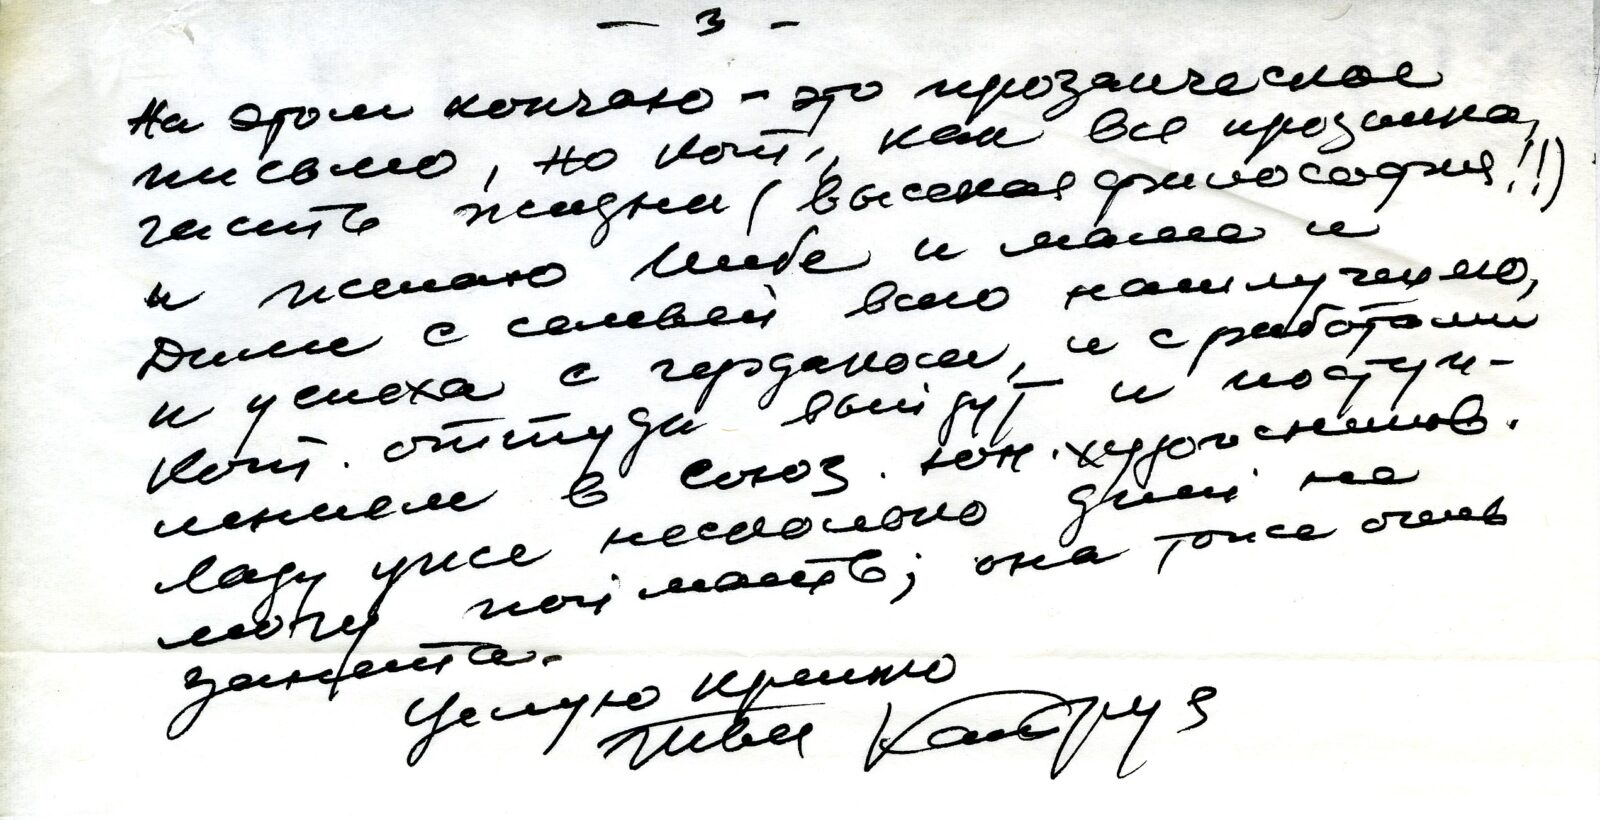 - 3 -
На этом кончаю - это прозаическое
письмо, но кот., как все прозаика,
часть жизни (высокая философия!!)
и желаю тебе и маме и
Диме с семьей всего наилучшего,
и успеха с чердаком, и с работами
кот. оттуда выйдут и поступ-
лением в союз. юн. художников.
Ладу уже несколько дней не
могу поймать; она тоже очень
занята.
Целую крепко
Твой